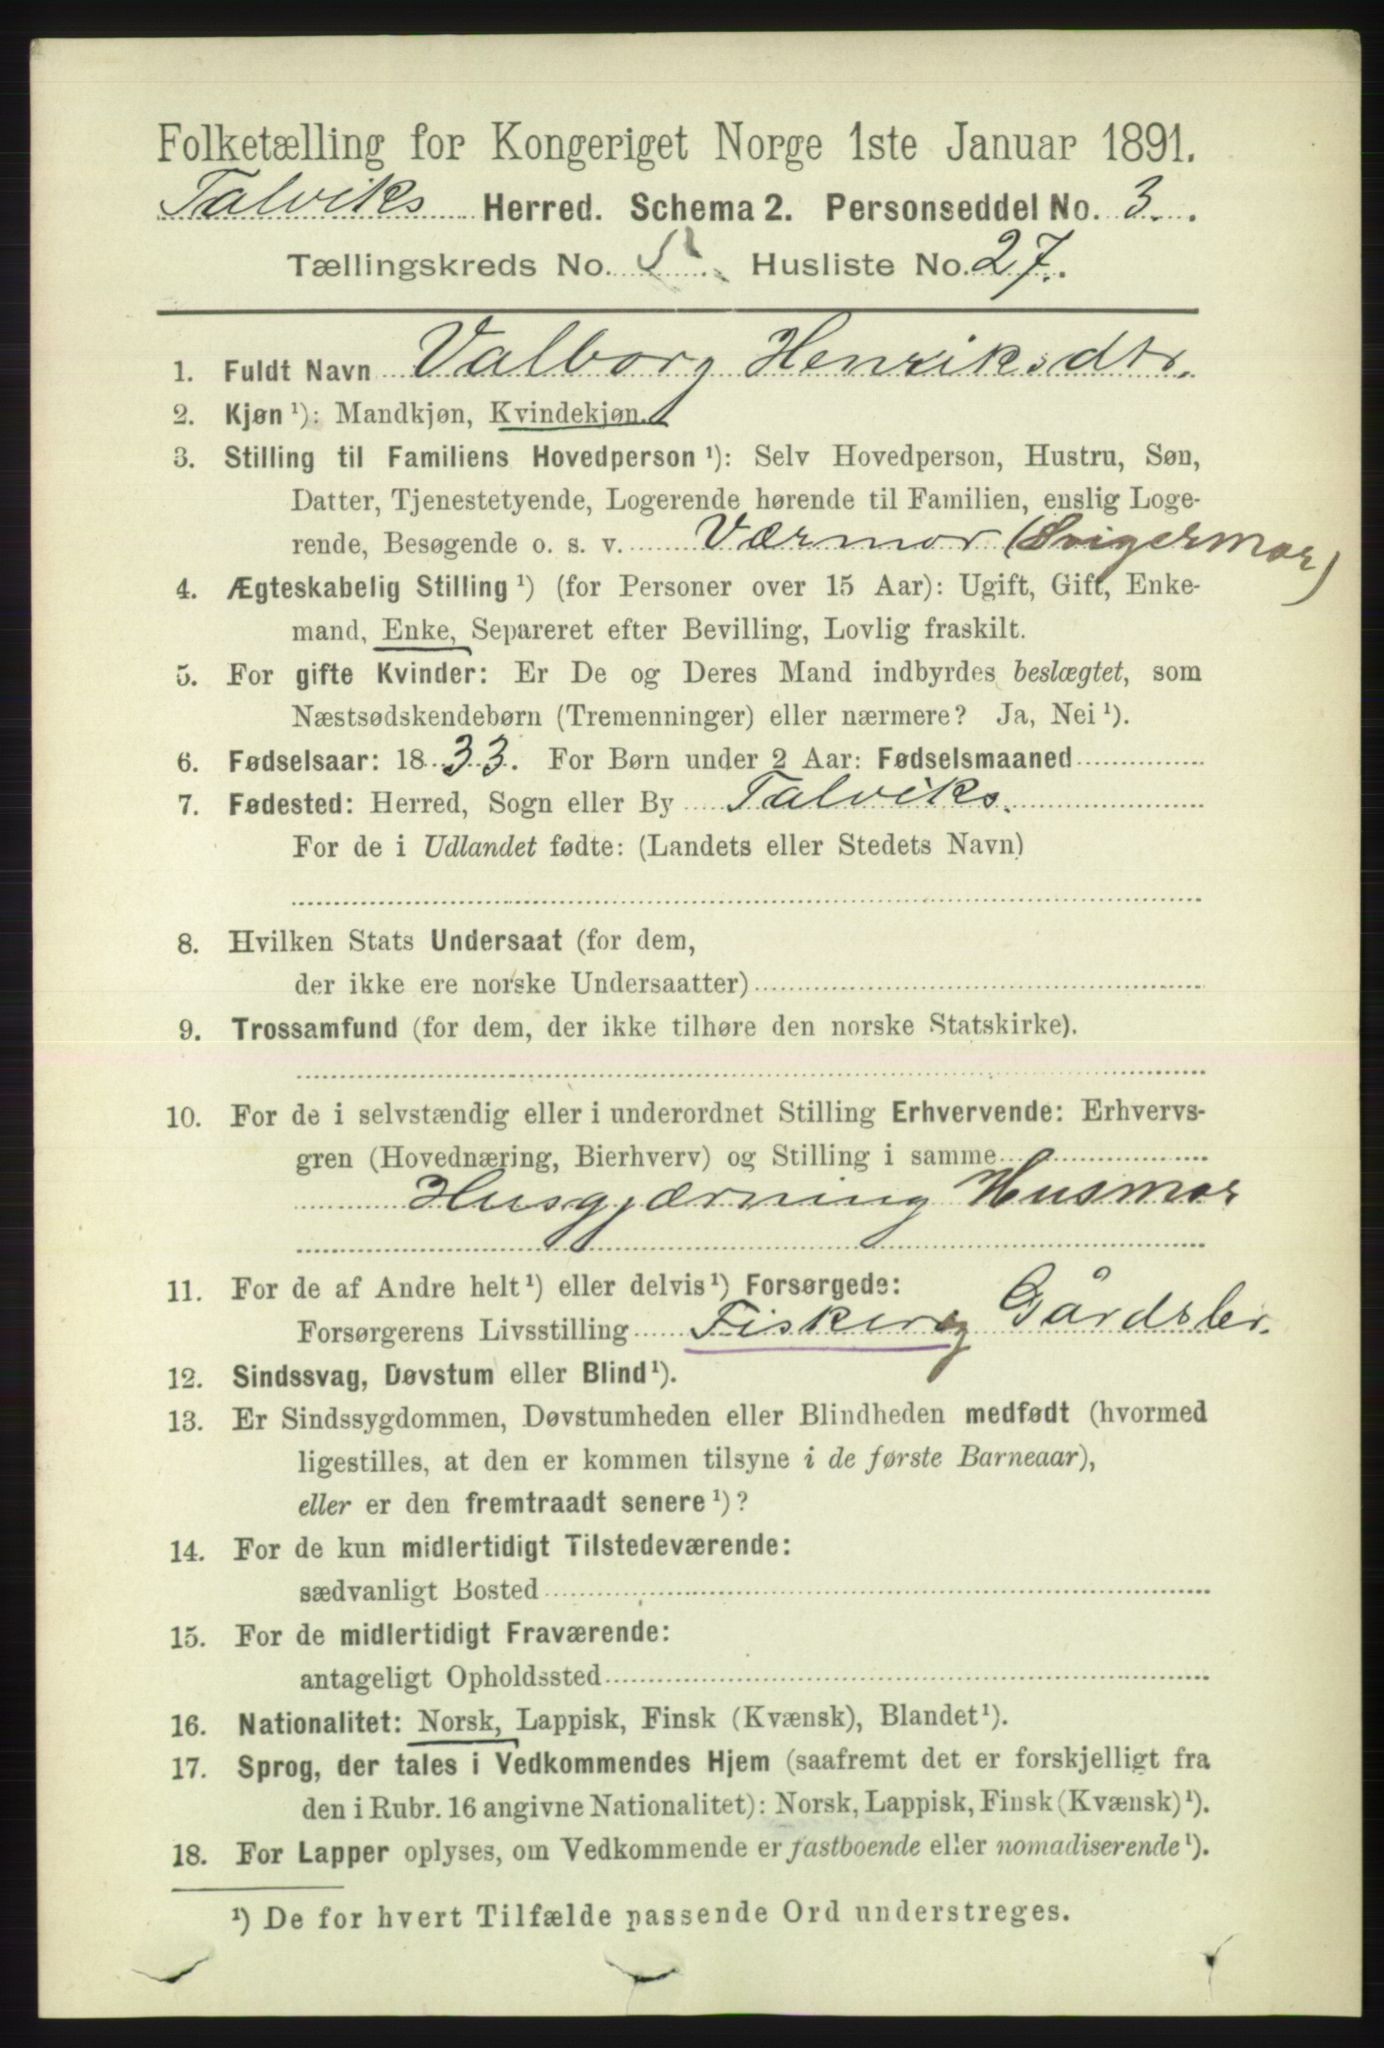 Folketælling for Kongeriget Norge 1ste Januar 1891.
Talviks Herred. Schema 2. Personseddel No. 3.
Tællingskreds No. 5. Husliste No. 27.
1. Fuldt Navn Valborg Henriksdtr.
2. Kjøn ¹): Mandkjøn, Kvindekjøn.
3. Stilling til Familiens Hovedperson ¹): Selv Hovedperson, Hustru, Søn,
Datter, Tjenestetyende, Logerende hørende til Familien, enslig Loge-
rende, Besøgende o. s. v. Værmor (Svigermor)
4. Ægteskabelig Stilling ¹) (for Personer over 15 Aar): Ugift, Gift, Enke-
mand, Enke, Separeret efter Bevilling, Lovlig fraskilt.
5. For gifte Kvinder: Er De og Deres Mand indbyrdes beslægtet, som
Næstsødskendebørn (Tremenninger) eller nærmere? Ja, Nei ¹).
6. Fødselsaar: 1833. For Børn under 2 Aar: Fødselsmaaned
7. Fødested: Herred, Sogn eller By Talviks.
For de i Udlandet fødte: (Landets eller Stedets Navn)
8. Hvilken Stats Undersaat (for dem,
der ikke ere norske Undersaatter)
9. Trossamfund (for dem, der ikke tilhøre den norske Statskirke).
10. For de i selvstændig eller i underordnet Stilling Erhvervende: Erhvervs-
gren (Hovednæring, Bierhverv) og Stilling i samme
Husgjærning Husmor
11. For de af Andre helt ¹) eller delvis ¹) Forsørgede:
Forsørgerens Livsstilling Fisker og Gårdsbr.
12. Sindssvag, Døvstum eller Blind ¹).
13. Er Sindssygdommen, Døvstumheden eller Blindheden medfødt (hvormed
ligestilles, at den er kommen tilsyne i de første Barneaar),
eller er den fremtraadt senere ¹)?
14. For de kun midlertidigt Tilstedeværende:
sædvanligt Bosted
15. For de midlertidigt Fraværende:
antageligt Opholdssted
16. Nationalitet: Norsk, Lappisk, Finsk (Kvænsk), Blandet ¹).
17. Sprog, der tales i Vedkommendes Hjem (saafremt det er forskjelligt fra
den i Rubr. 16 angivne Nationalitet): Norsk, Lappisk, Finsk (Kvænsk) ¹).
18. For Lapper oplyses, om Vedkommende er fastboende eller nomadiserende ¹).
¹) De for hvert Tilfælde passende Ord understreges.